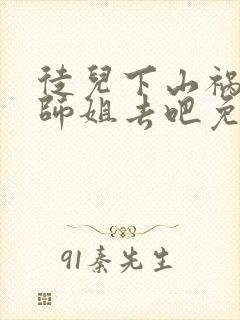 徒儿下山祸
师姐去吧免
91秦先生